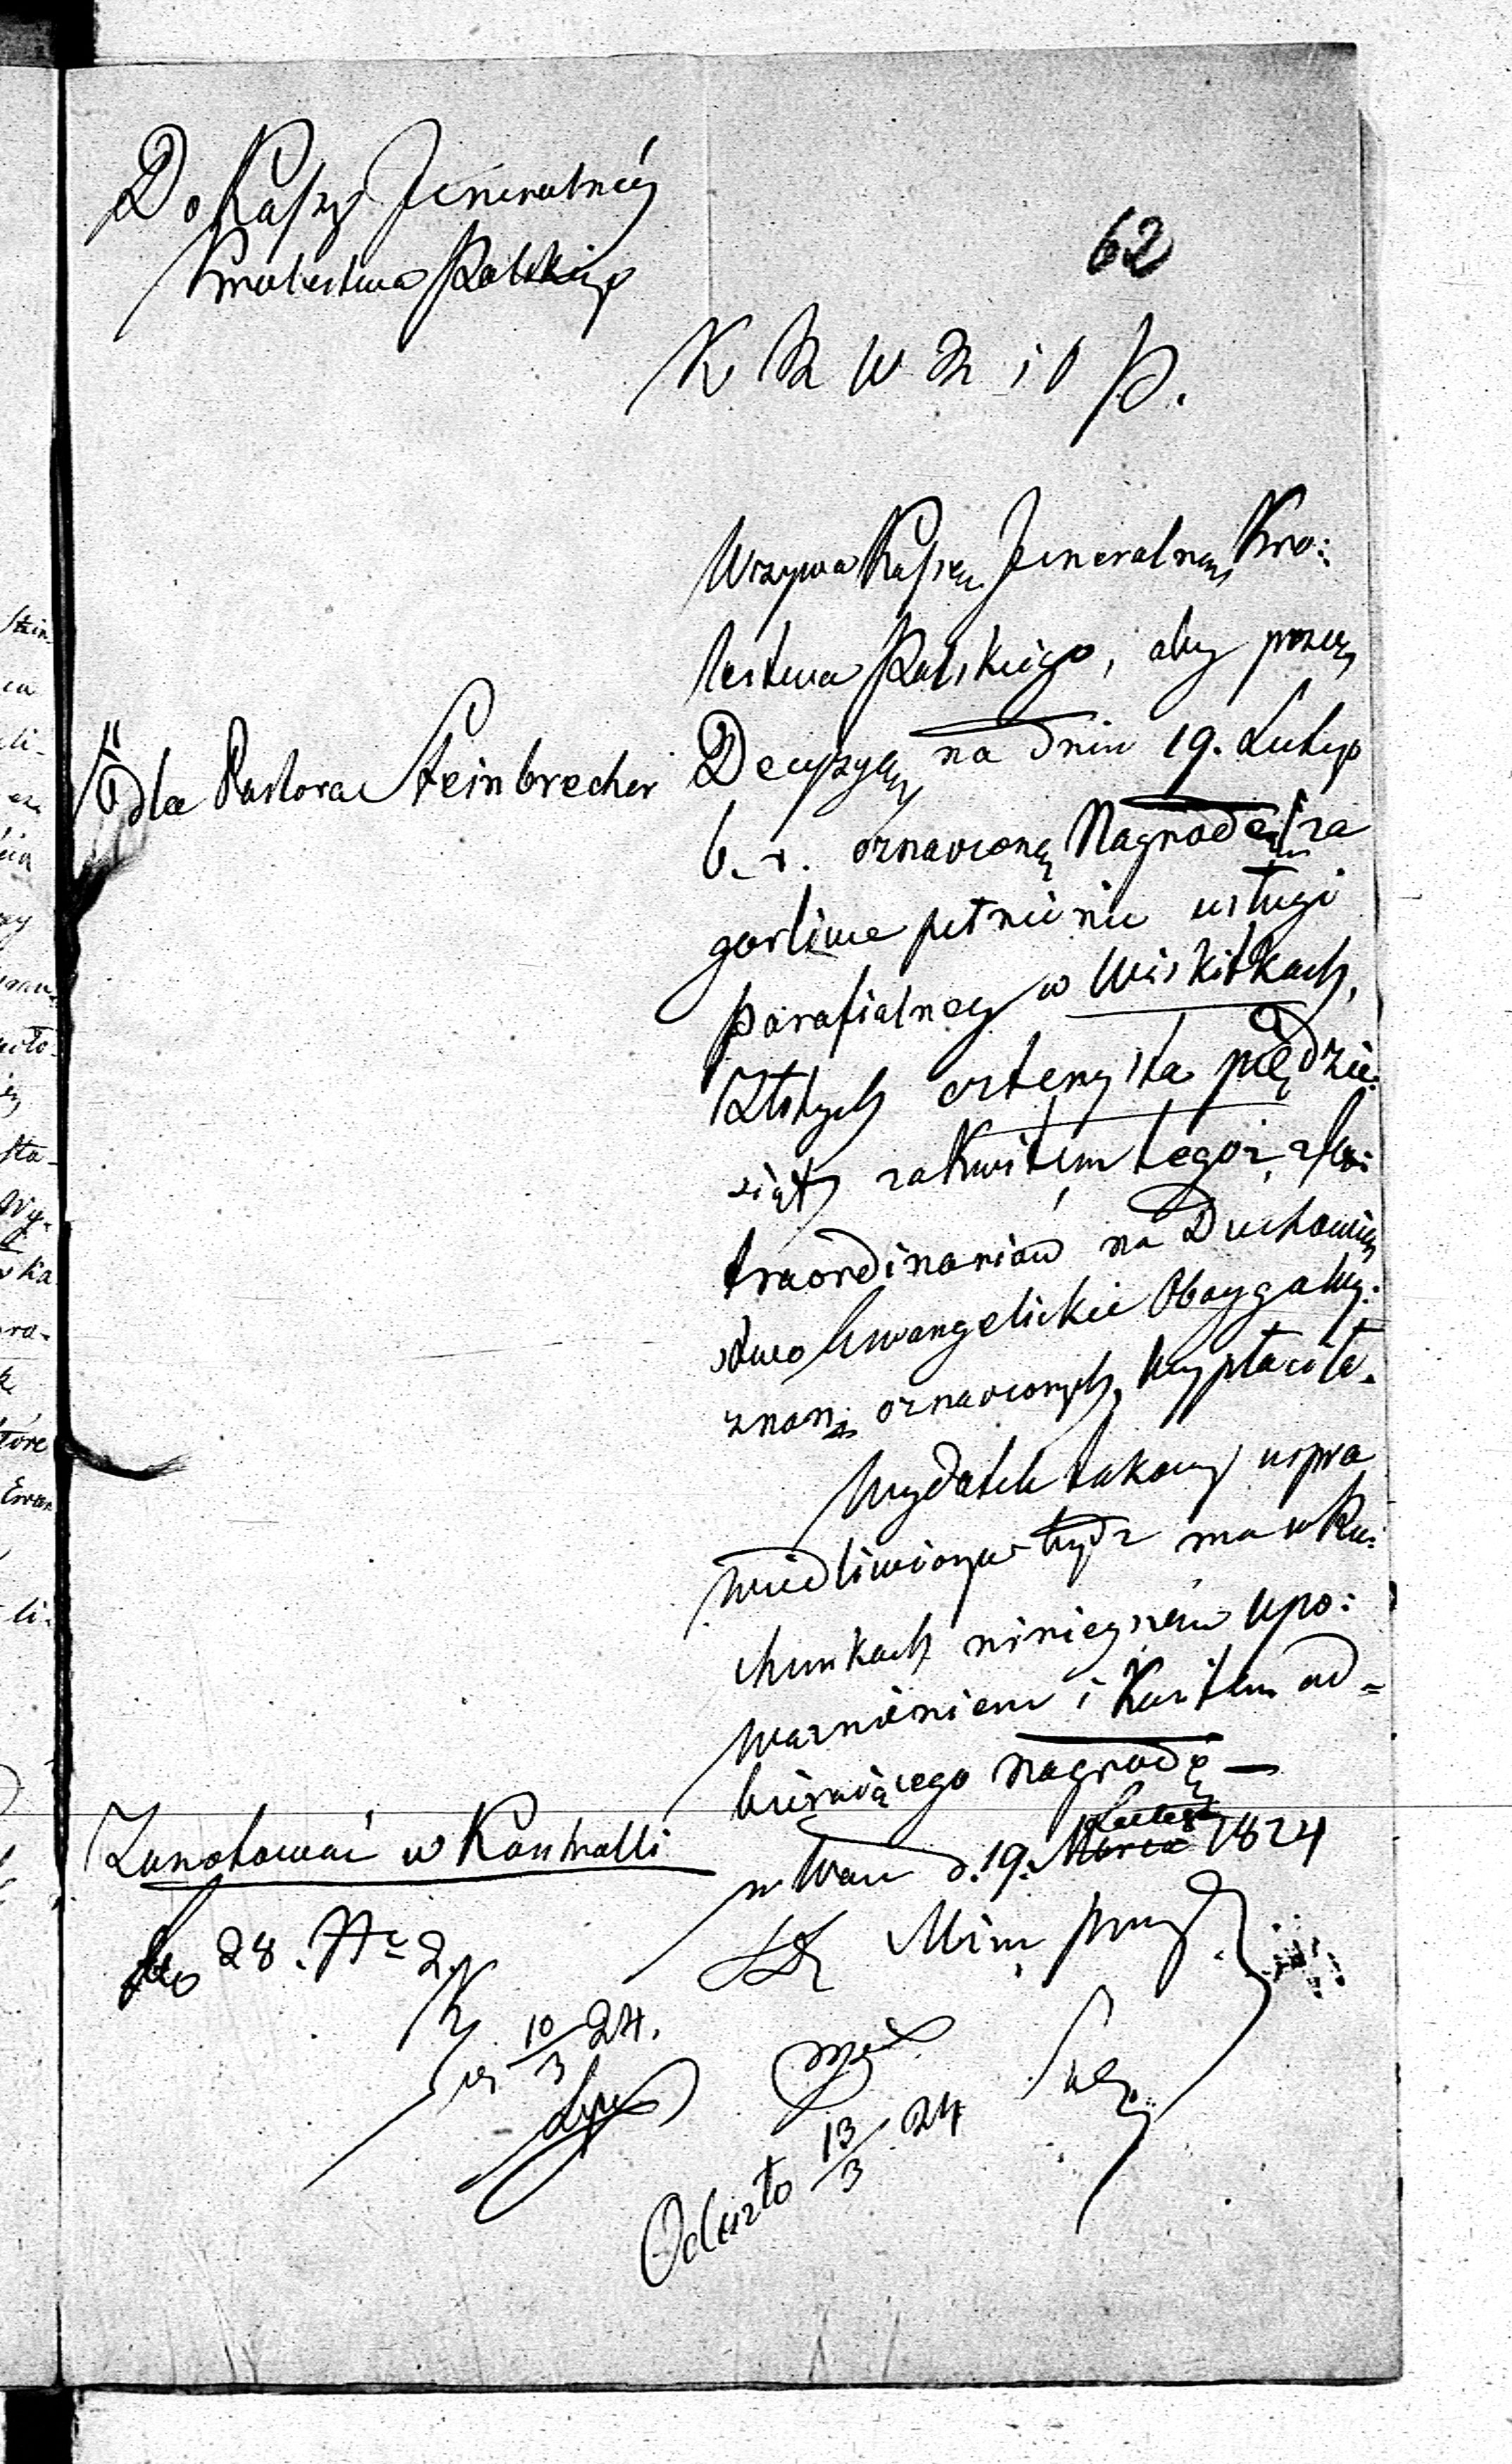 Do Kassy Jeneralnéy
Królestwa Polskiego
62
K R W R i O P.
Wzywa Kassę Jeneralną Kró:
lestwa Polskiego, aby przez
Decyzyą na dniu 19. Lutego
b. r. oznaczoną Nagrodę za
gorliwe pełnienie usługi
parafialney w Wiskitkach,
Złotych czterysta pięćdzie:
siąt, za kwitem tegoż, z Ex:
traordinariów na Duchowień
stwo Ewangelickie Oboyga Wy:
znań oznaczonych, wypłaciła.
Wydatek takowy uspra
wiedliwionym bydź ma w Ra:
chunkach ninieyszem upo:
ważnieniem i Kwitem od=
bieraiącego nagrodę —
w Warsz d. 19. Marca Lutego 1824
Min prezyd
dla Pastora Steinbrecher
Zanotować w Kontrolli
28. 2.
10/3 24.
Odeszło 13/3 24